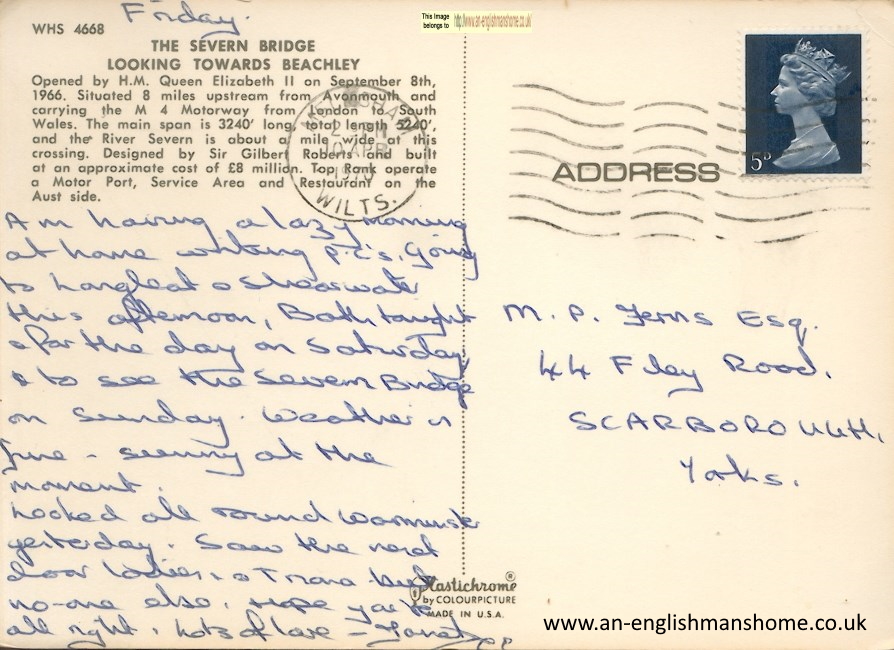 Friday.
This Image
belongs to
http://www.an-englishmanshome.co.uk/
WHS 4668
THE SEVERN BRIDGE
LOOKING TOWARDS BEACHLEY
Opened by H.M. Queen Elizabeth II on September 8th,
1966. Situated 8 miles upstream from Avonmouth and
carrying the M 4 Motorway from London to South
Wales. The main span is 3240' long, total length 5240',
and the River Severn is about a mile wide at this
crossing. Designed by Sir Gilbert Roberts and built
at an approximate cost of £8 million. Top Rank operate
a Motor Port, Service Area and Restaurant on the
Aust side.
APR
WILTS.
5D
ADDRESS
Am having a lazy morning
at home writing p.c's. Going
to Longleat & Shearwater
this afternoon, Bath
& for the day on Saturday,
& to see the Severn Bridge
on Sunday. Weather is
fine - sunny at the
moment.
Looked all round Warminster
yesterday. Saw the next
door ladies, & but
no-one else. Hope you're
all right. Lots of love - Janet
M. P. Ferns Esq.
44 Filey Road,
SCARBOROUGH,
Yorks.
Plastichrome®
by COLOURPICTURE
MADE IN U.S.A.
www.an-englishmanshome.co.uk